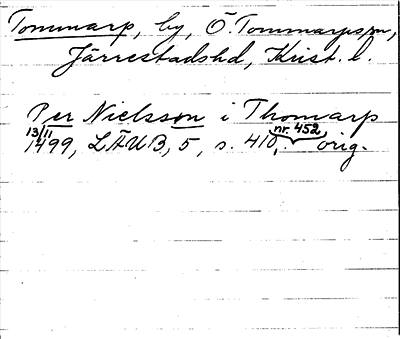 Tommarp, by, Ö. Tommarpssn,
Järrestadshd, Krist. l.
Per Nielsson i Thomarp
13/11 1499, LÄUB, 5, s. 410, nr. 452, orig.